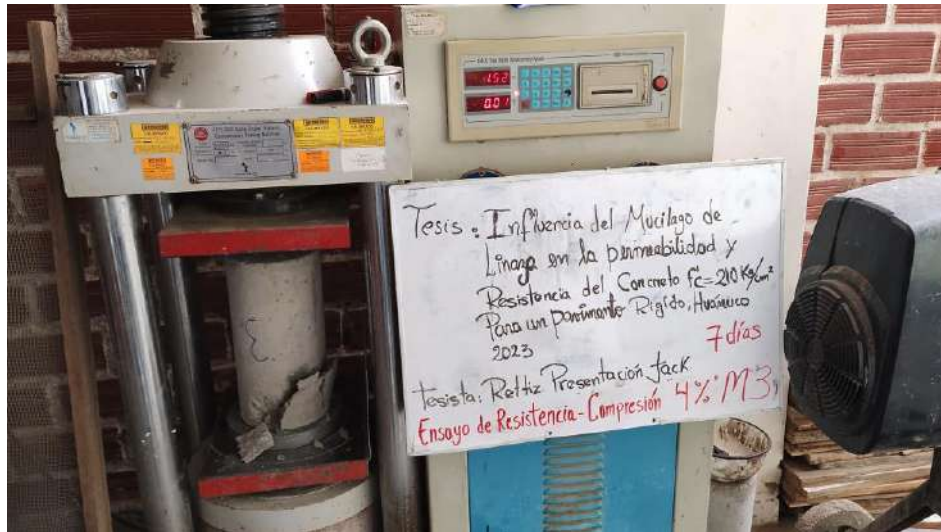 1.52
0.01
Tesis : Influencia del Mucilago de
Linaza en la permeabilidad y
Resistencia del Concreto f'c=210 Kg/cm²
Para un pavimento Rigido, Huánuco
2023
7 días
Tesista: Rettiz Presentación Jack
Ensayo de Resistencia-Compresión 4% M3